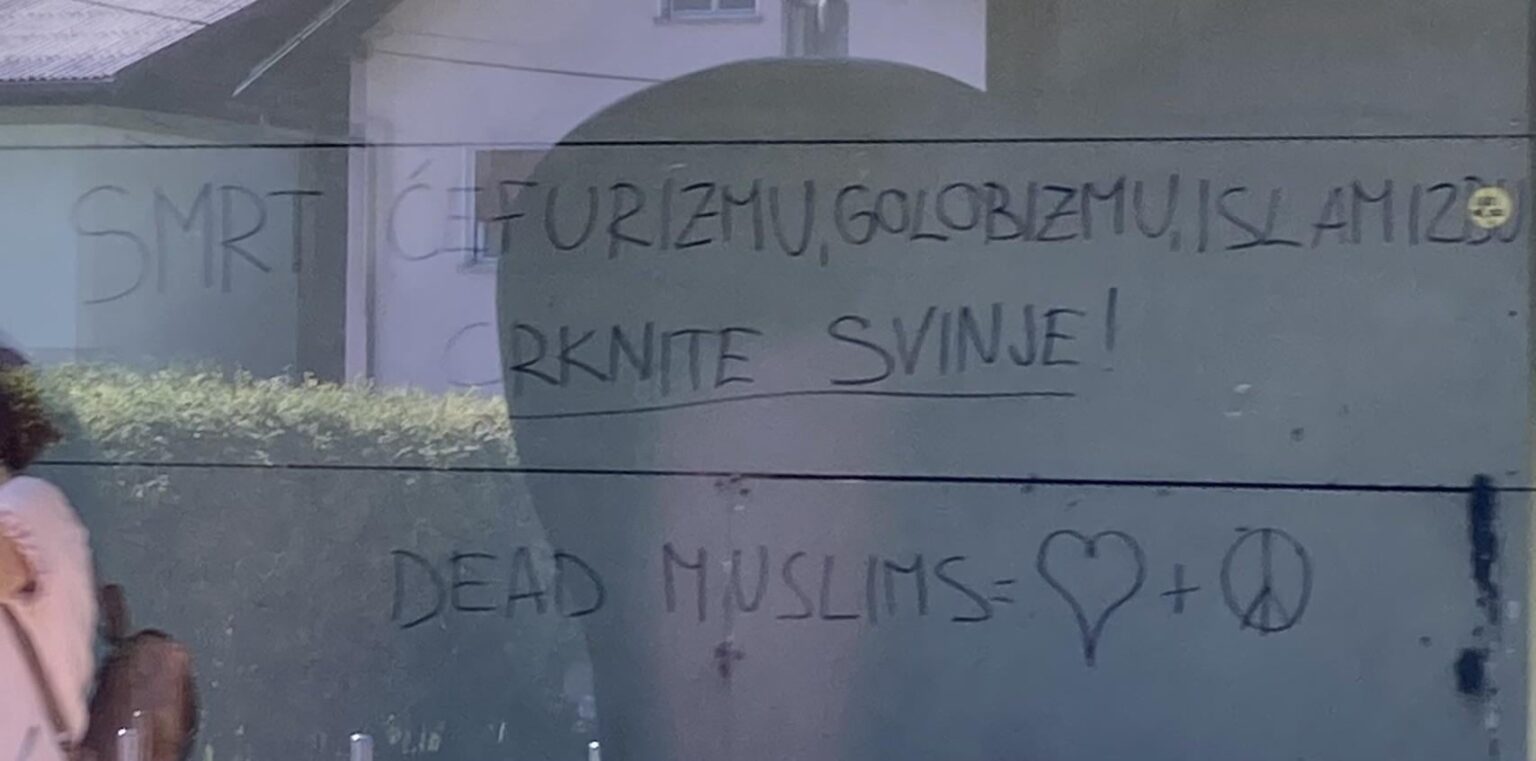 SMRT ČEFURIZMU, GOLOBIZMU, ISLAMIZMU
CRKNITE SVINJE!
DEAD MUSLIMS=♡+☮